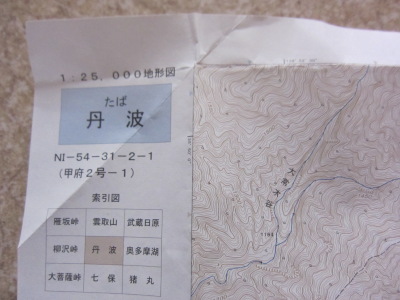 1:25,000地形図
たば
丹波
NI-54-31-2-1
(甲府2号-1)
索引図
雁坂峠 雲取山 武蔵日原
柳沢峠 丹波 奥多摩湖
大菩薩峠 七保 猪丸